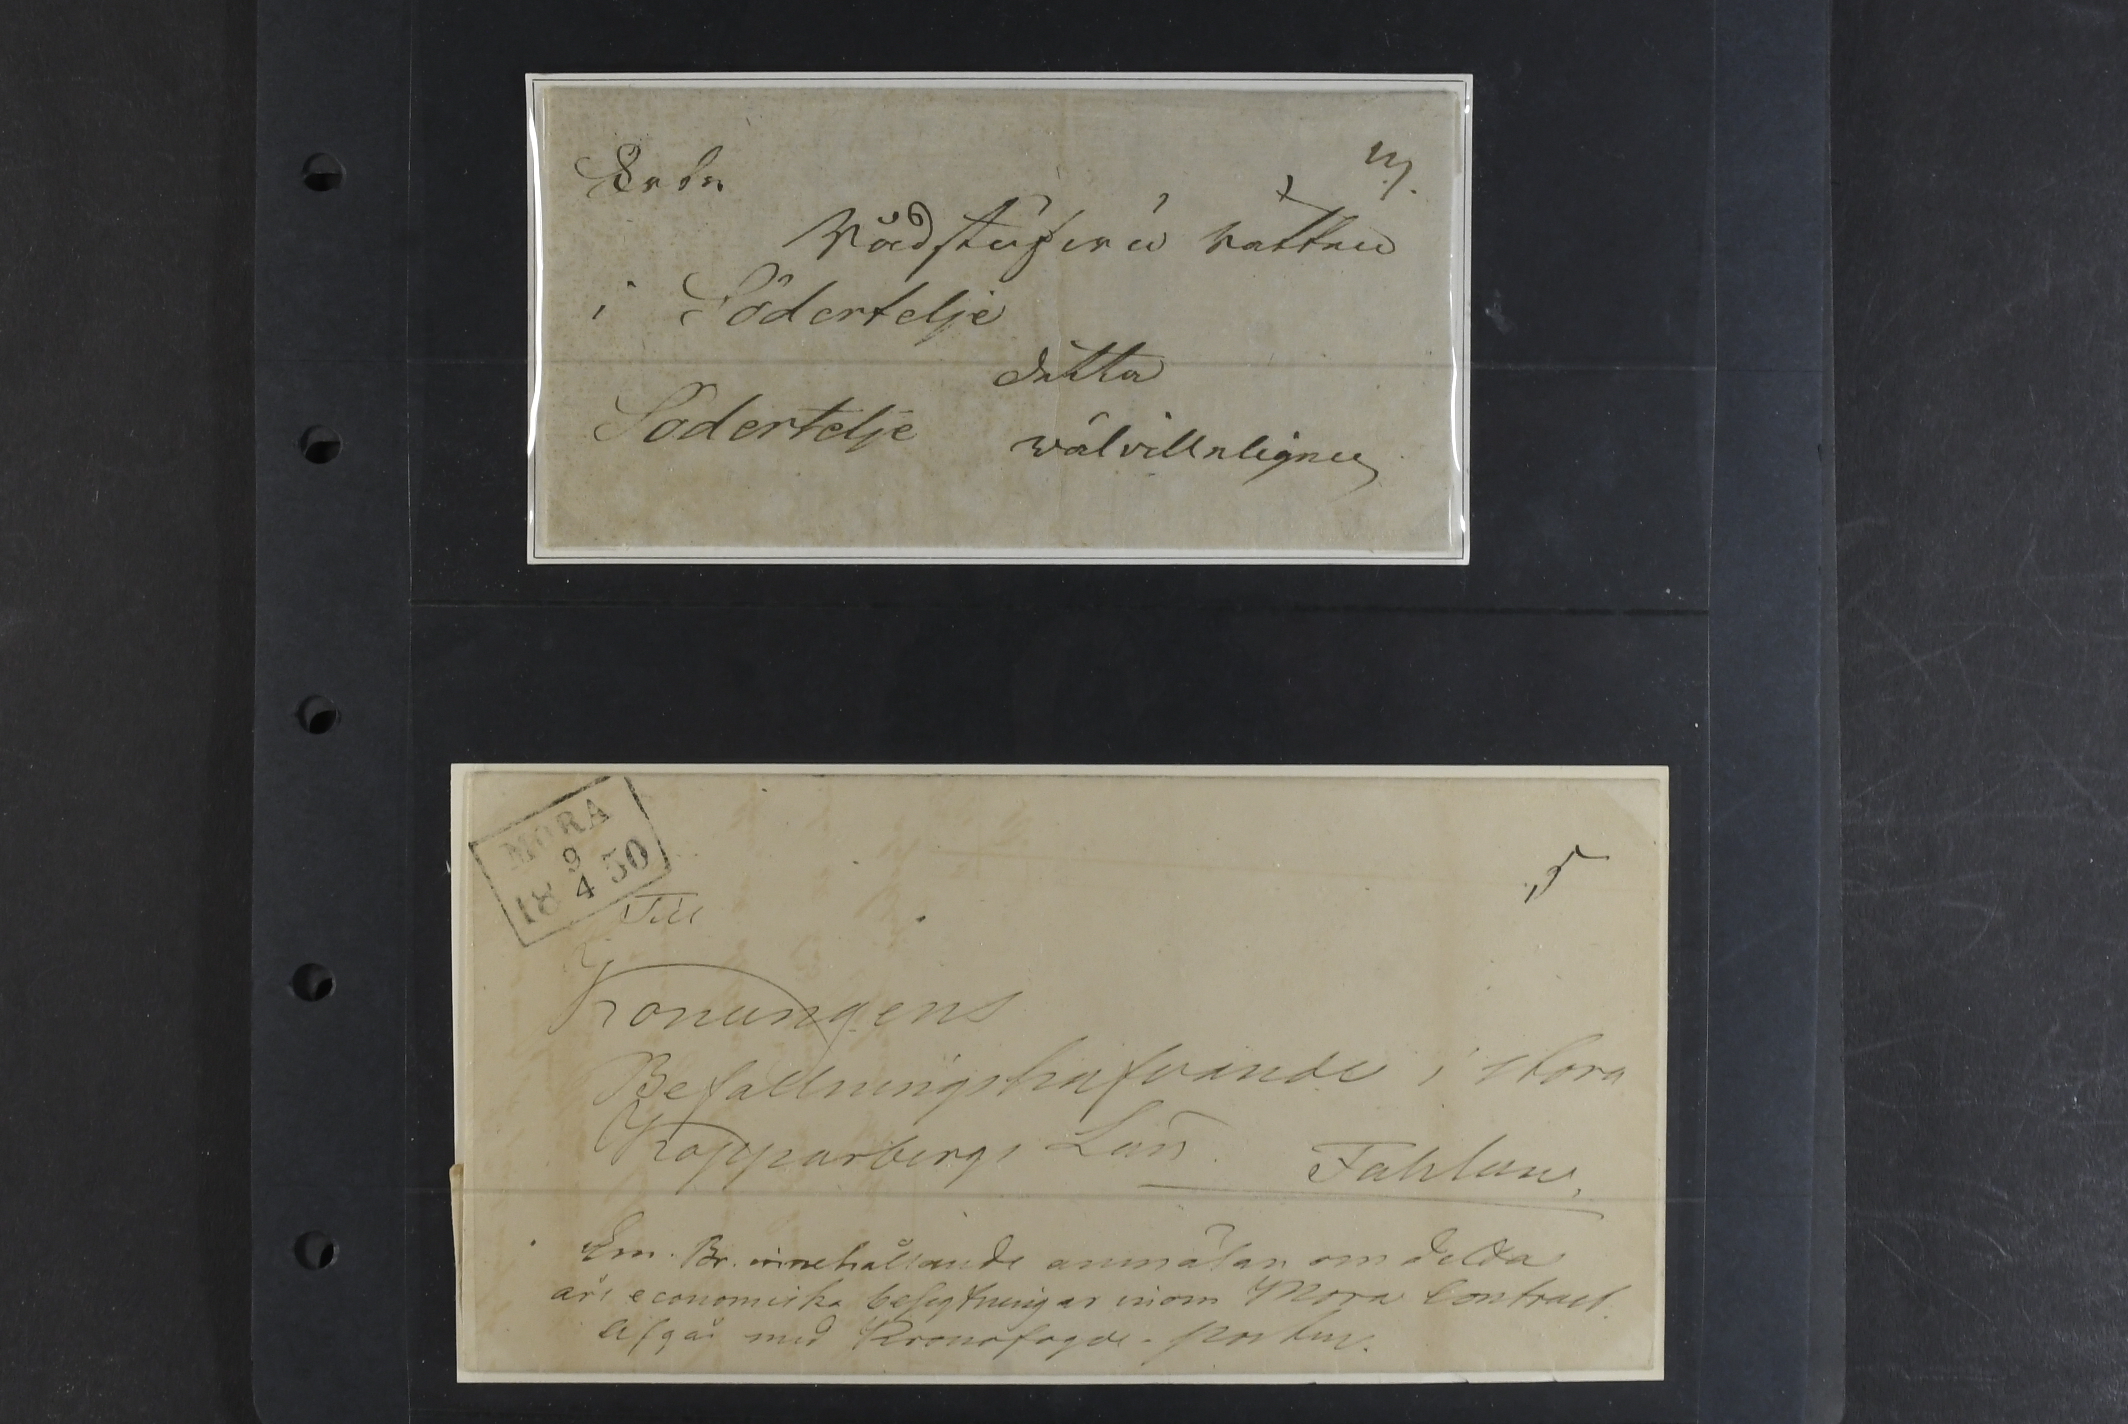 Rådstufvu Rätten
i Södertelje
detta
Södertelje wälvilkorligen
MORA
9
18 4 50
5
Till
Konungens
Befallningshafvande i Stora
Kopparbergs Län. Fahlun.
Em. Br. innehållande anmälan om detta
års economiska besigtningar inom Mora Contract.
Afgår med Kronofogde-posten.